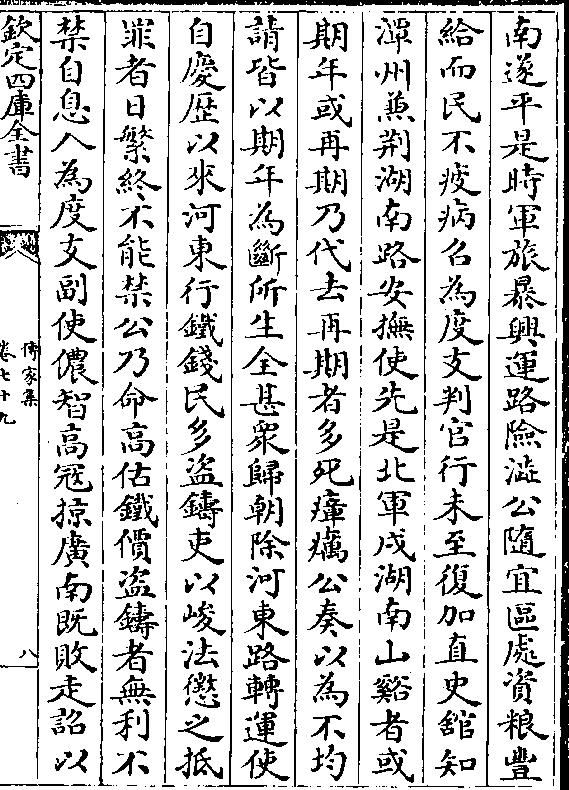 南遂平是時軍旅暴興運路險澁公隨宜區處資粮豐
給而民不疲病召為度支判官行未至復加直史舘知
潭州兼荆湖南路安撫使先是北軍戍湖南山谿者或
期年或再期乃代去再期者多死瘴癘公奏以為不均
請皆以期年為斷所生全甚衆歸朝除河東路轉運使
自慶歴以來河東行鐵錢民多盜鑄吏以峻法懲之抵
罪者日繁終不能禁公乃命高估鐵價盜鑄者無利不
禁自息入為度支副使儂智高冦掠廣南既敗走詔以
欽定四庫全書
傳家集
卷七十九
八